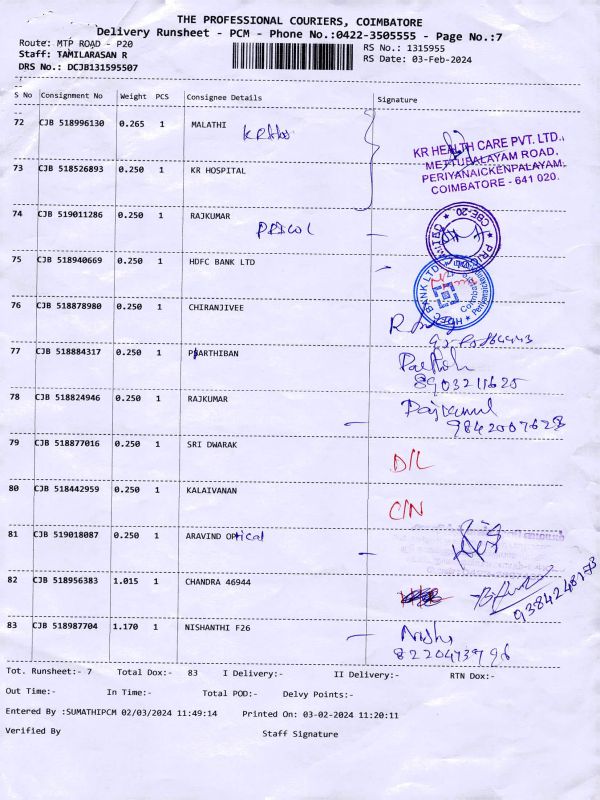 THE PROFESSIONAL COURIERS, COIMBATORE
Delivery Runsheet - PCM - Phone No.:0422-3505555 - Page No.:7
Route: MTP ROAD - P20
Staff: TAMILARASAN R
DRS No.: DCJB131595507
RS No.: 1315955
RS Date: 03-Feb-2024
S No Consignment No Weight PCS Consignee Details Signature
72 CJB 518996130 0.265 1 MALATHI
KR HEALTH CARE PVT. LTD.,
METTUPALAYAM ROAD,
PERIYANAICKENPALAYAM,
COIMBATORE - 641 020.
73 CJB 518526893 0.250 1 KR HOSPITAL
74 CJB 519011286 0.250 1 RAJKUMAR
PRICOL
CBE-20
75 CJB 518940669 0.250 1 HDFC BANK LTD
HDFC BANK LTD
76 CJB 518878980 0.250 1 CHIRANJIVEE
77 CJB 518884317 0.250 1 PARTHIBAN
8903211625
78 CJB 518824946 0.250 1 RAJKUMAR
Rajkumar
9842007628
79 CJB 518877016 0.250 1 SRI DWARAK
D/L
80 CJB 518442959 0.250 1 KALAIVANAN
C/N
81 CJB 519018087 0.250 1 ARAVIND OPtical
82 CJB 518956383 1.015 1 CHANDRA 46944
9384248173
83 CJB 518987704 1.170 1 NISHANTHI F26
Nishi
8220473996
Tot. Runsheet:- 7 Total Dox:- 83 I Delivery:- II Delivery:- RTN Dox:-
Out Time:- In Time:- Total POD:- Delvy Points:-
Entered By :SUMATHIPCM 02/03/2024 11:49:14 Printed On: 03-02-2024 11:20:11
Verified By Staff Signature